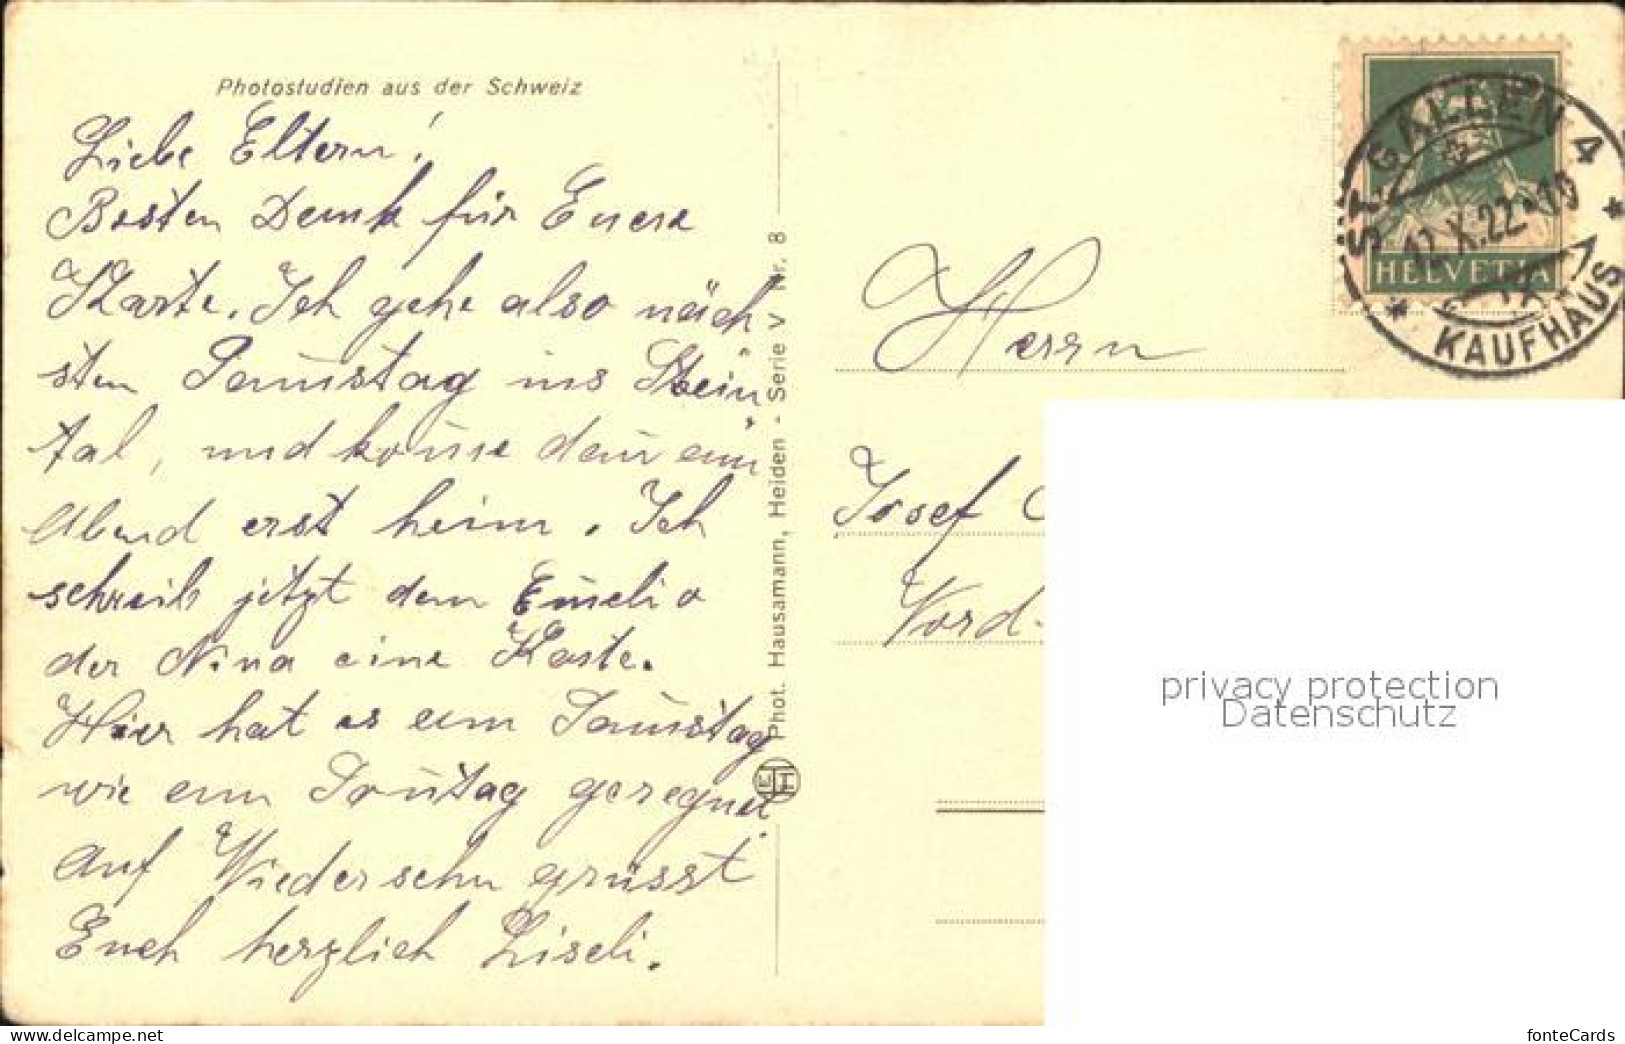 Photostudien aus der Schweiz
Liebe Eltern!
Besten Dank für Euere
Karte. Ich gehe also näch-
sten Samstag ins Stein-
tal, und kom̄e dan̄ am
Abend erst heim. Ich
schreib jetzt dem Emeli o
der Nina eine Karte.
Hier hat es am Samstag
wie am Son̄tag geregnet.
Auf Wiedersehn grüsst
Euch herzlich Liseli.
Phot. Hausamann, Heiden - Serie V Nr. 8
EH
HELVETIA
ST. GALLEN 4
12.X.22.-19
KAUFHAUS
Herrn
Josef
Nord-
privacy protection
Datenschutz
www.ansichtskartenversand.com
fonteCards